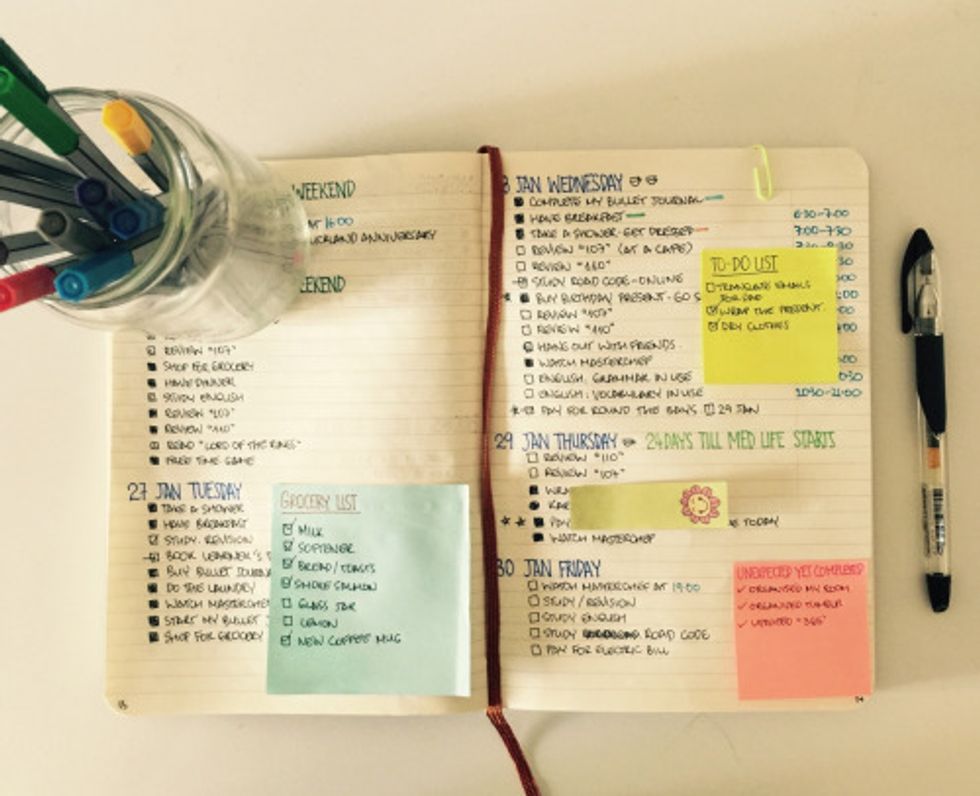 WEEKEND
AT 16:00
ANNIVERSARY
REVIEW "107"
SHOP FOR GROCERY
HAVE DINNER
STUDY ENGLISH
REVIEW "107"
REVIEW "110"
READ "LORD OF THE RINGS"
FREE TIME-GAME
27 JAN TUESDAY
TAKE A SHOWER
HAVE BREAKFAST
STUDY REVISION
BOOK LEARNER'S
BUY BULLET
DO THE LAUNDRY
WATCH
START MY BULLET
SHOP FOR GROCERY
GROCERY LIST
MILK
SOFTENER
BREAD/TOASTS
SMOKE SALMON
GLASS JAR
LEMON
NEW COFFEE MUG
13
JAN WEDNESDAY
COMPLETE MY BULLET JOURNAL
HAVE BREAKFAST 6:30-7:00
TAKE A SHOWER-GET DRESSED 7:00-7:30
REVIEW "107" (AT A CAFE)
REVIEW
STUDY ROAD CODE-ONLINE
BUY BIRTHDAY PRESENT-GO
REVIEW "107"
REVIEW "110"
HANG OUT WITH FRIENDS
WATCH MASTERCHEF
ENGLISH: GRAMMAR IN USE
ENGLISH: VOCABULARY IN USE
PAY FOR ROUND THE BAYS 29 JAN
TO-DO LIST
TRANSLATE EMAILS
FOR DAD
WRAP THE PRESENT
DRY CLOTHES
29 JAN THURSDAY 24 DAYS TILL MED LIFE STARTS
REVIEW "110"
REVIEW "107"
PAY TODAY
WATCH MASTERCHEF
30 JAN FRIDAY
WATCH MASTERCHEF AT 19:00
STUDY/REVISION
STUDY ENGLISH
STUDY ROAD CODE
PAY FOR ELECTRIC BILL
UNEXPECTED YET COMPLETED
ORGANISED MY ROOM
ORGANISED TUMBLR
UPDATED "365"
14